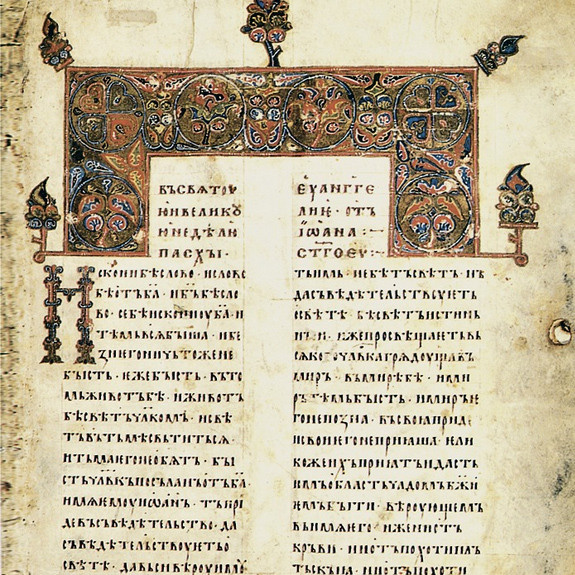 въсвѧтоу
юивеликоу
юнедѣлю
пасхꙑ·
исконибѣслово·ислово
бѣотъба·ибъбѣсло
во·себѣисконноуба·и
тѣмьвьсѧбꙑша·ибе
знегоничьтожене
бꙑсть·ежебꙑсть·въто
мьживотъбѣ·иживот
бѣсвѣтчлкомъ·исвѣ
тъвътьмѣсвьтитьсѧ·
итьмаегонеобѧтъ·бꙑ
стьчлвкъпосъланъотъба
имѧемоуиѡанъ·тъпрі
девъсъвѣдѣтельство·да
съвѣдѣтельствоуетьо
свѣтѣ·давьсивѣроуимо
еуангге
лие·отъ
іѡана·
стгоеу:·
тьимь·небѣтъсвѣтъ·нъ
дасъвѣдѣтельствоуеть
свѣтѣ·бѣсвѣтъистинь
нꙑи·ижепросвѣщаетьвь
сѧкогочлвкагрѧдоущавъ
миръ·въмирѣбѣ·ими
рътѣмьбꙑсть·имиръе
гонепозна·въсвоꙗприде
исвоиегонеприꙗша·ели
кожеихъприꙗтъидасть
имъобластьчадомъбжи
емъбꙑти·вѣроующемъ
въимѧего·иженист
кръви·ниотъпохотипл
тьскꙑꙗ·ниотъпохоти